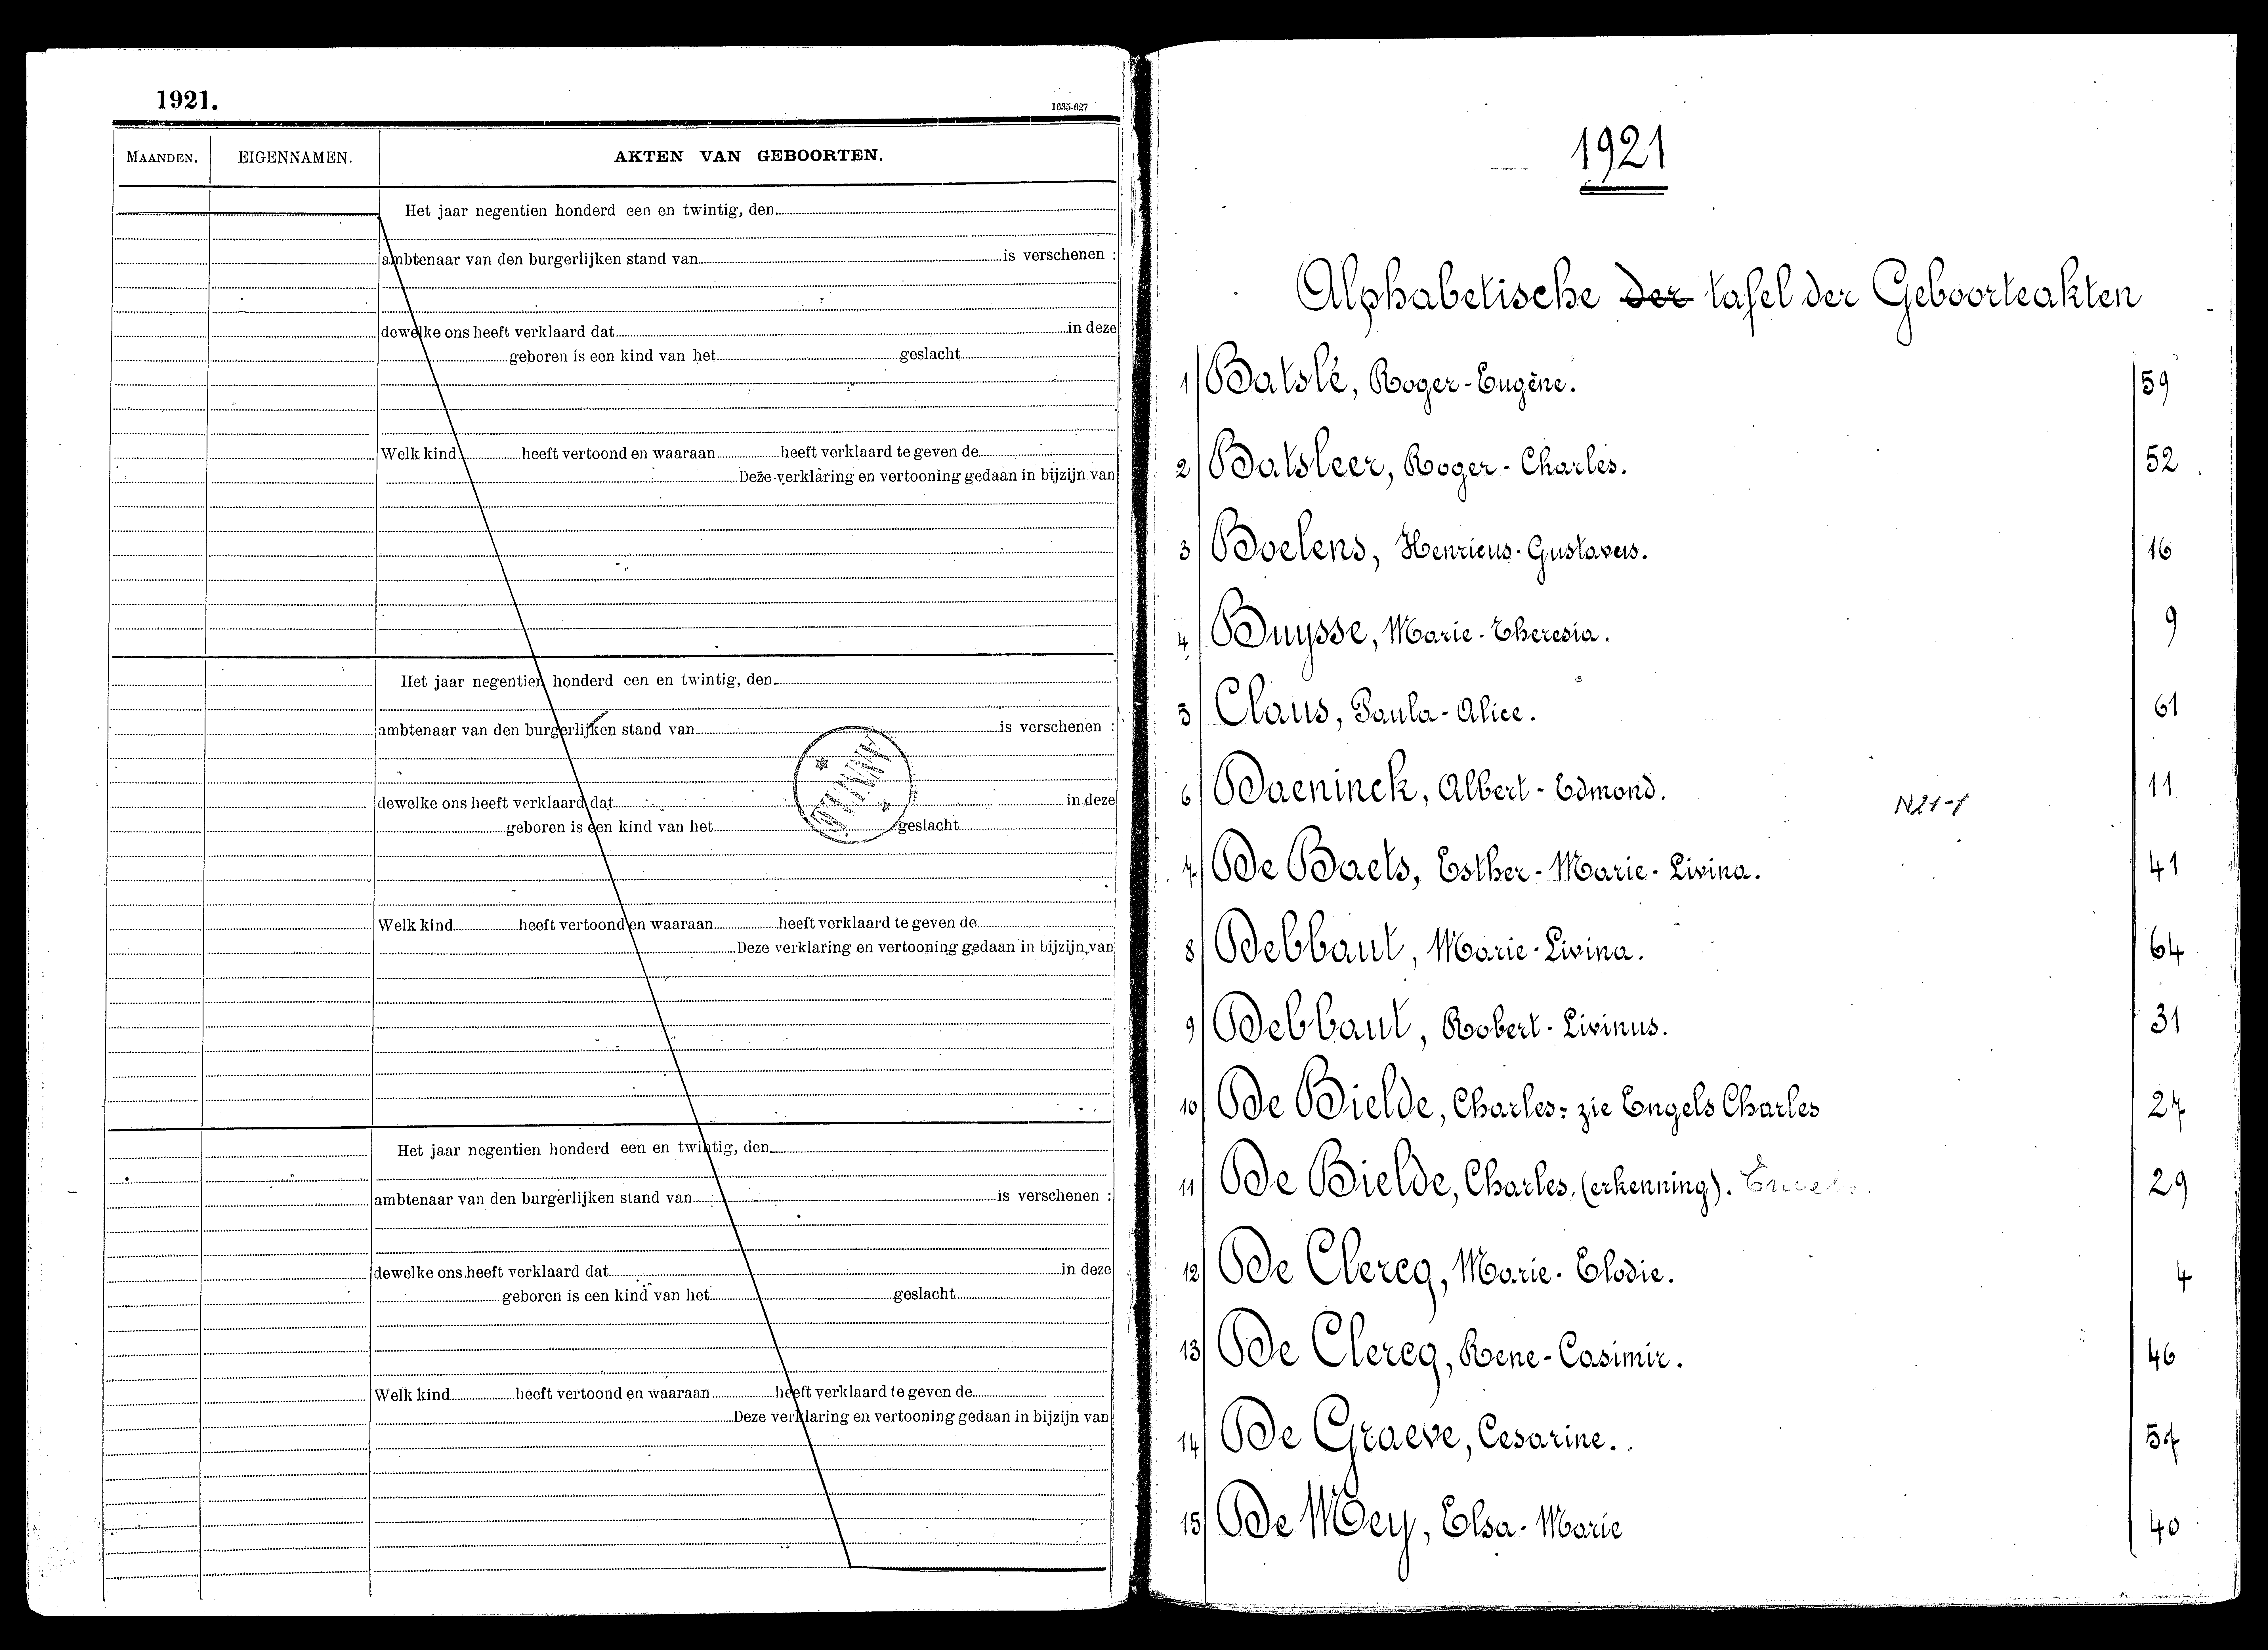 1921.
1635-627
MAANDEN.
EIGENNAMEN.
AKTEN VAN GEBOORTEN.
Het jaar negentien honderd een en twintig, den
ambtenaar van den burgerlijken stand van is verschenen :
dewelke ons heeft verklaard dat in deze
geboren is een kind van het geslacht
Welk kind heeft vertoond en waaraan heeft verklaard te geven de
Deze verklaring en vertooning gedaan in bijzijn van
Het jaar negentien honderd een en twintig, den
ambtenaar van den burgerlijken stand van is verschenen :
dewelke ons heeft verklaard dat in deze
geboren is een kind van het geslacht
Welk kind heeft vertoond en waaraan heeft verklaard te geven de
Deze verklaring en vertooning gedaan in bijzijn van
Het jaar negentien honderd een en twintig, den
ambtenaar van den burgerlijken stand van is verschenen :
dewelke ons heeft verklaard dat in deze
geboren is een kind van het geslacht
Welk kind heeft vertoond en waaraan heeft verklaard te geven de
Deze verklaring en vertooning gedaan in bijzijn van
1921
Alphabetische der tafel der Geboorteakten
1 Batslé, Roger-Eugène. 59
2 Batsleer, Roger-Charles. 52
3 Boelens, Henricus-Gustavus. 16
4 Buysse, Marie-Theresia. 9
5 Claus, Paula-Alice. 61
6 Daeninck, Albert-Edmond. N21-1 11
7 De Baets, Esther-Marie-Livina. 41
8 Debbaut, Marie-Livina. 64
9 Debbaut, Robert-Livinus. 31
10 De Bielde, Charles: zie Engels Charles 27
11 De Bielde, Charles. (erkenning). 29
12 De Clercq, Marie-Elodie. 4
13 De Clercq, Rene-Casimir. 46
14 De Graeve, Cesarine. 57
15 De Mey, Elsa-Marie 40